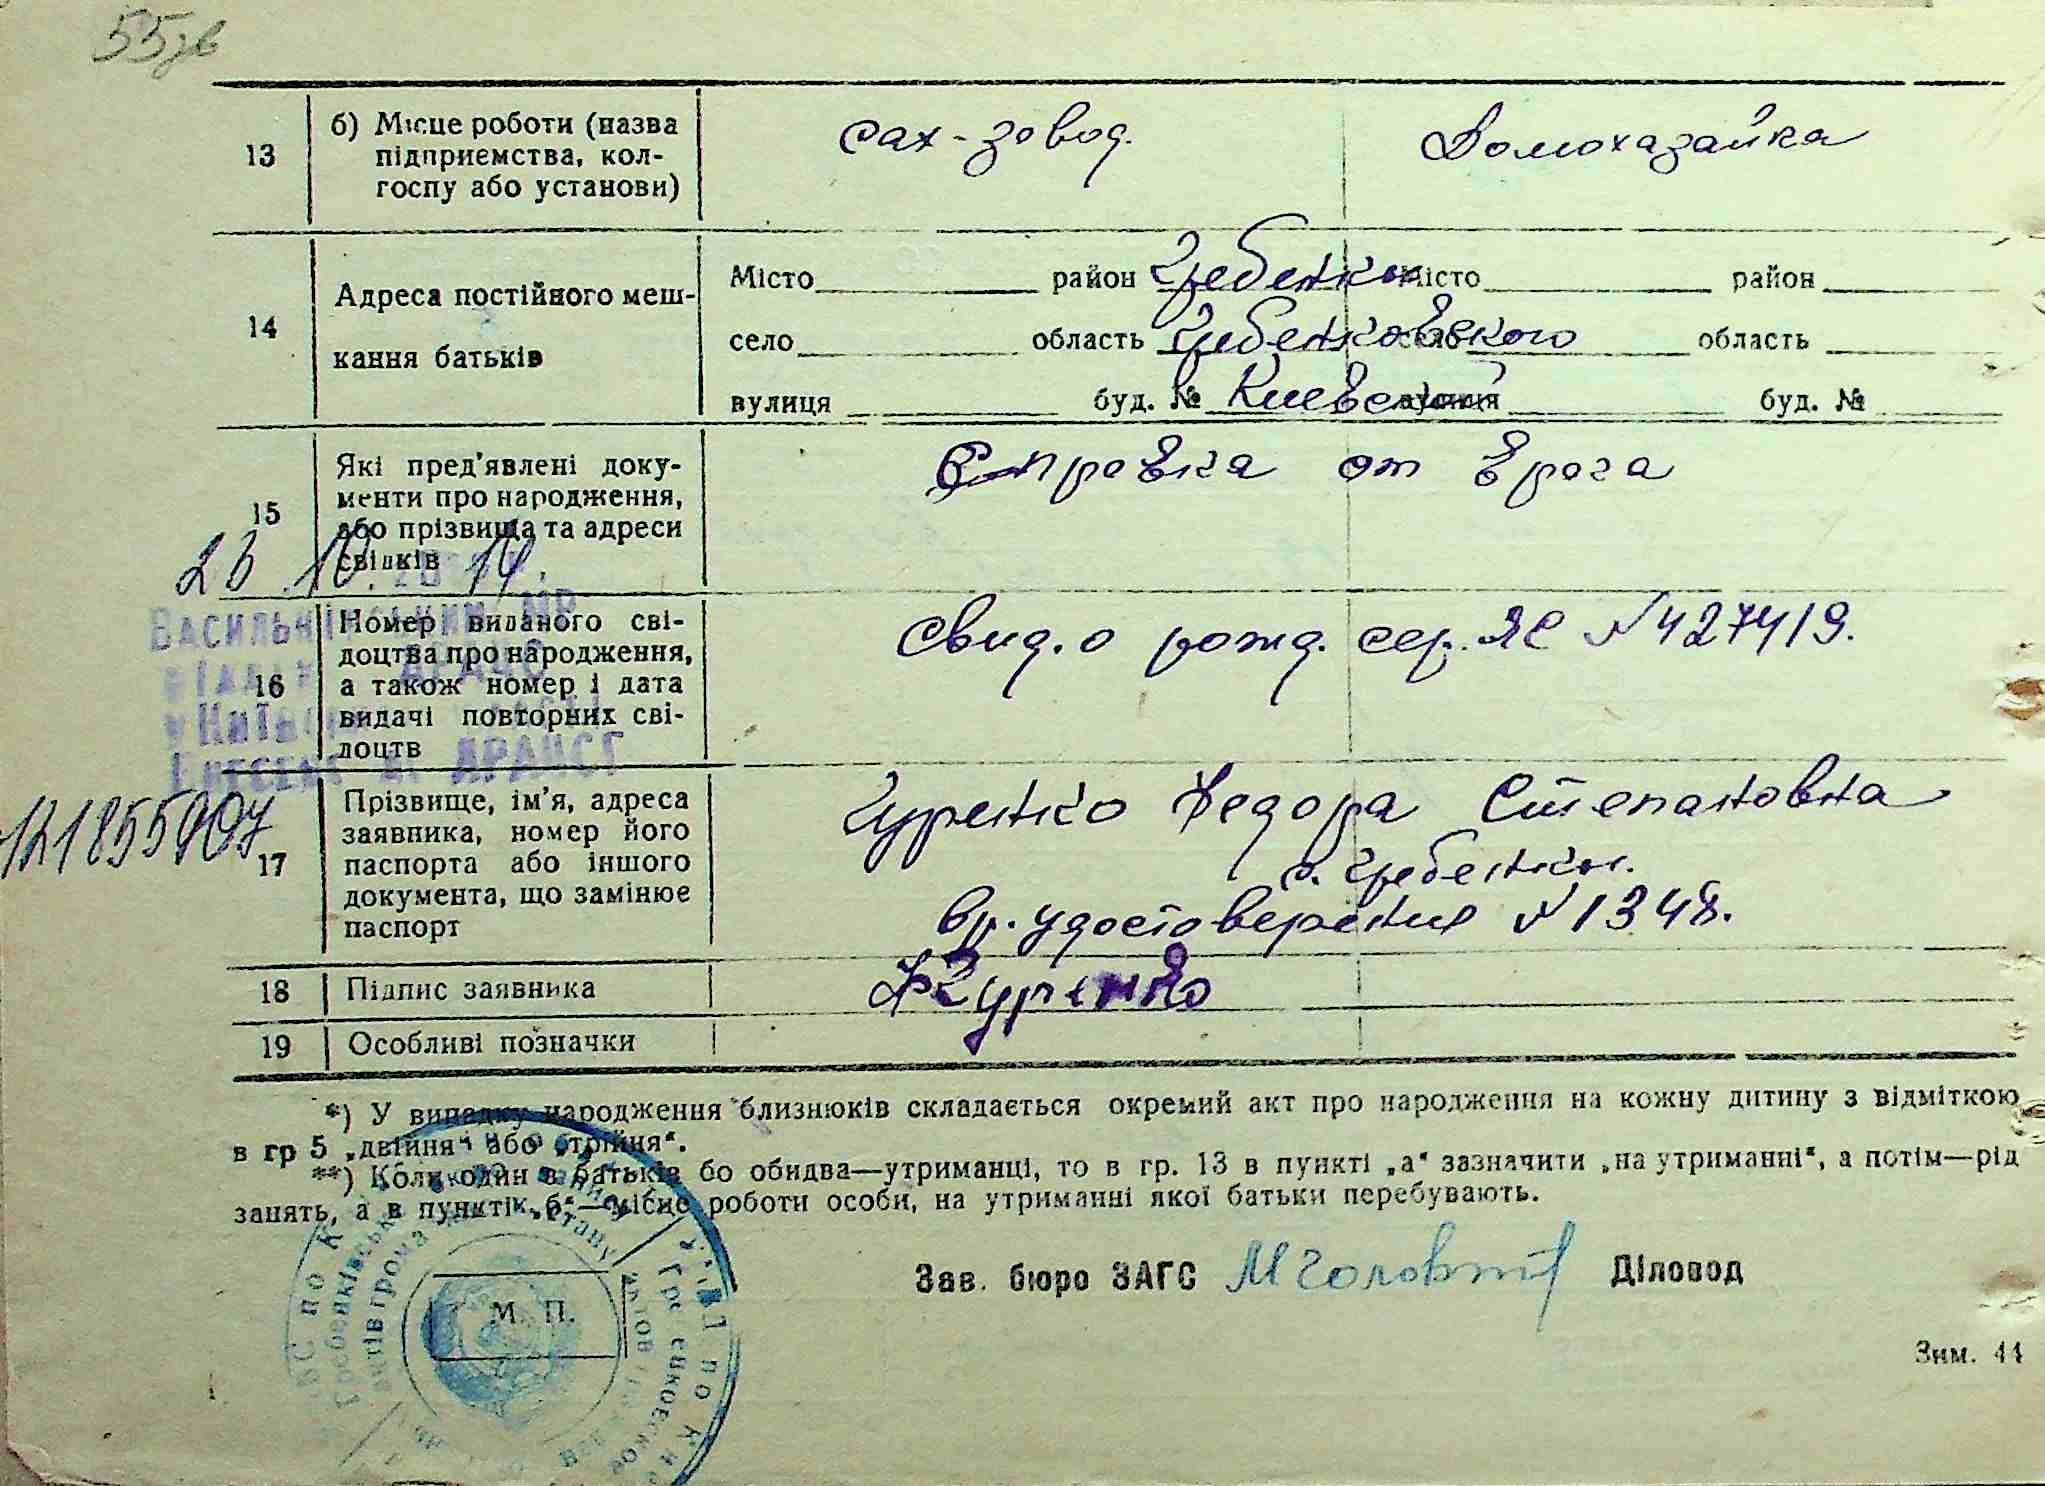 55зв
13
б) Місце роботи (назва
підприємства, кол-
госпу або установи)
сах-завод.
Домохазайка
14
Адреса постійного меш-
кання батьків
Місто район Гребенки Місто район
село область Гребенковского область
вулиця буд. № Киевской вулиця буд. №
15
Які пред'явлені доку-
менти про народження,
або прізвища та адреси
свідків
Справка от врача
23.10.2014
Васильківський МР
16
Номер виданого сві-
доцтва про народження,
а також номер і дата
видачі повторних сві-
доцтв
свид. о рожд. сер. ЯС №427419.
ДРАЦСГ
121855907
17
Прізвище, ім'я, адреса
заявника, номер його
паспорта або іншого
документа, що замінює
паспорт
Гуренко Федора Степановна
с. Гребенки.
вр. удостоверения №1348.
18
Підпис заявника
ФГуренко
19
Особливі позначки
*) У випадку народження близнюків складається окремий акт про народження на кожну дитину з відміткою
в гр 5 „двійня“ або „трійня“.
**) Коли один в батьків бо обидва—утриманці, то в гр. 13 в пункті „а“ зазначити „на утриманні“, а потім—рід
занять, а в пункті „б“—місце роботи особи, на утриманні якої батьки перебувають.
Зав. бюро ЗАГС Діловод
М. П.
Зим. 44